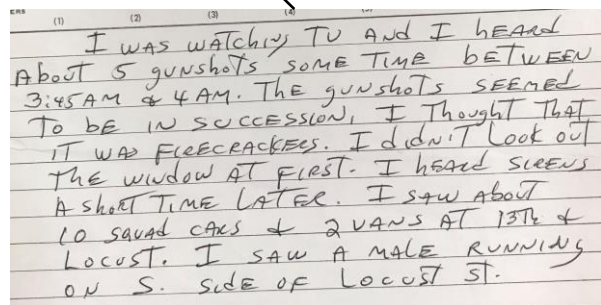 ERS (1) (2) (3) (4)
I WAS WATCHING TV AND I hEARd
About 5 gunshots SOME TIME bETWEEN
3:45AM & 4 AM. ThE gunshoTs SEEMEd
To bE IN SUCCESSION, I Thought That
IT WAS FIRECRACKERS. I didN'T Look out
ThE window AT FIRST. I hEARd SIRENS
A shoRT TIME LATER. I SAW About
10 squad cARs & 2 VANS AT 13Th &
Locust. I SAW A MALE RUNNING
ON S. SidE OF Locust ST.